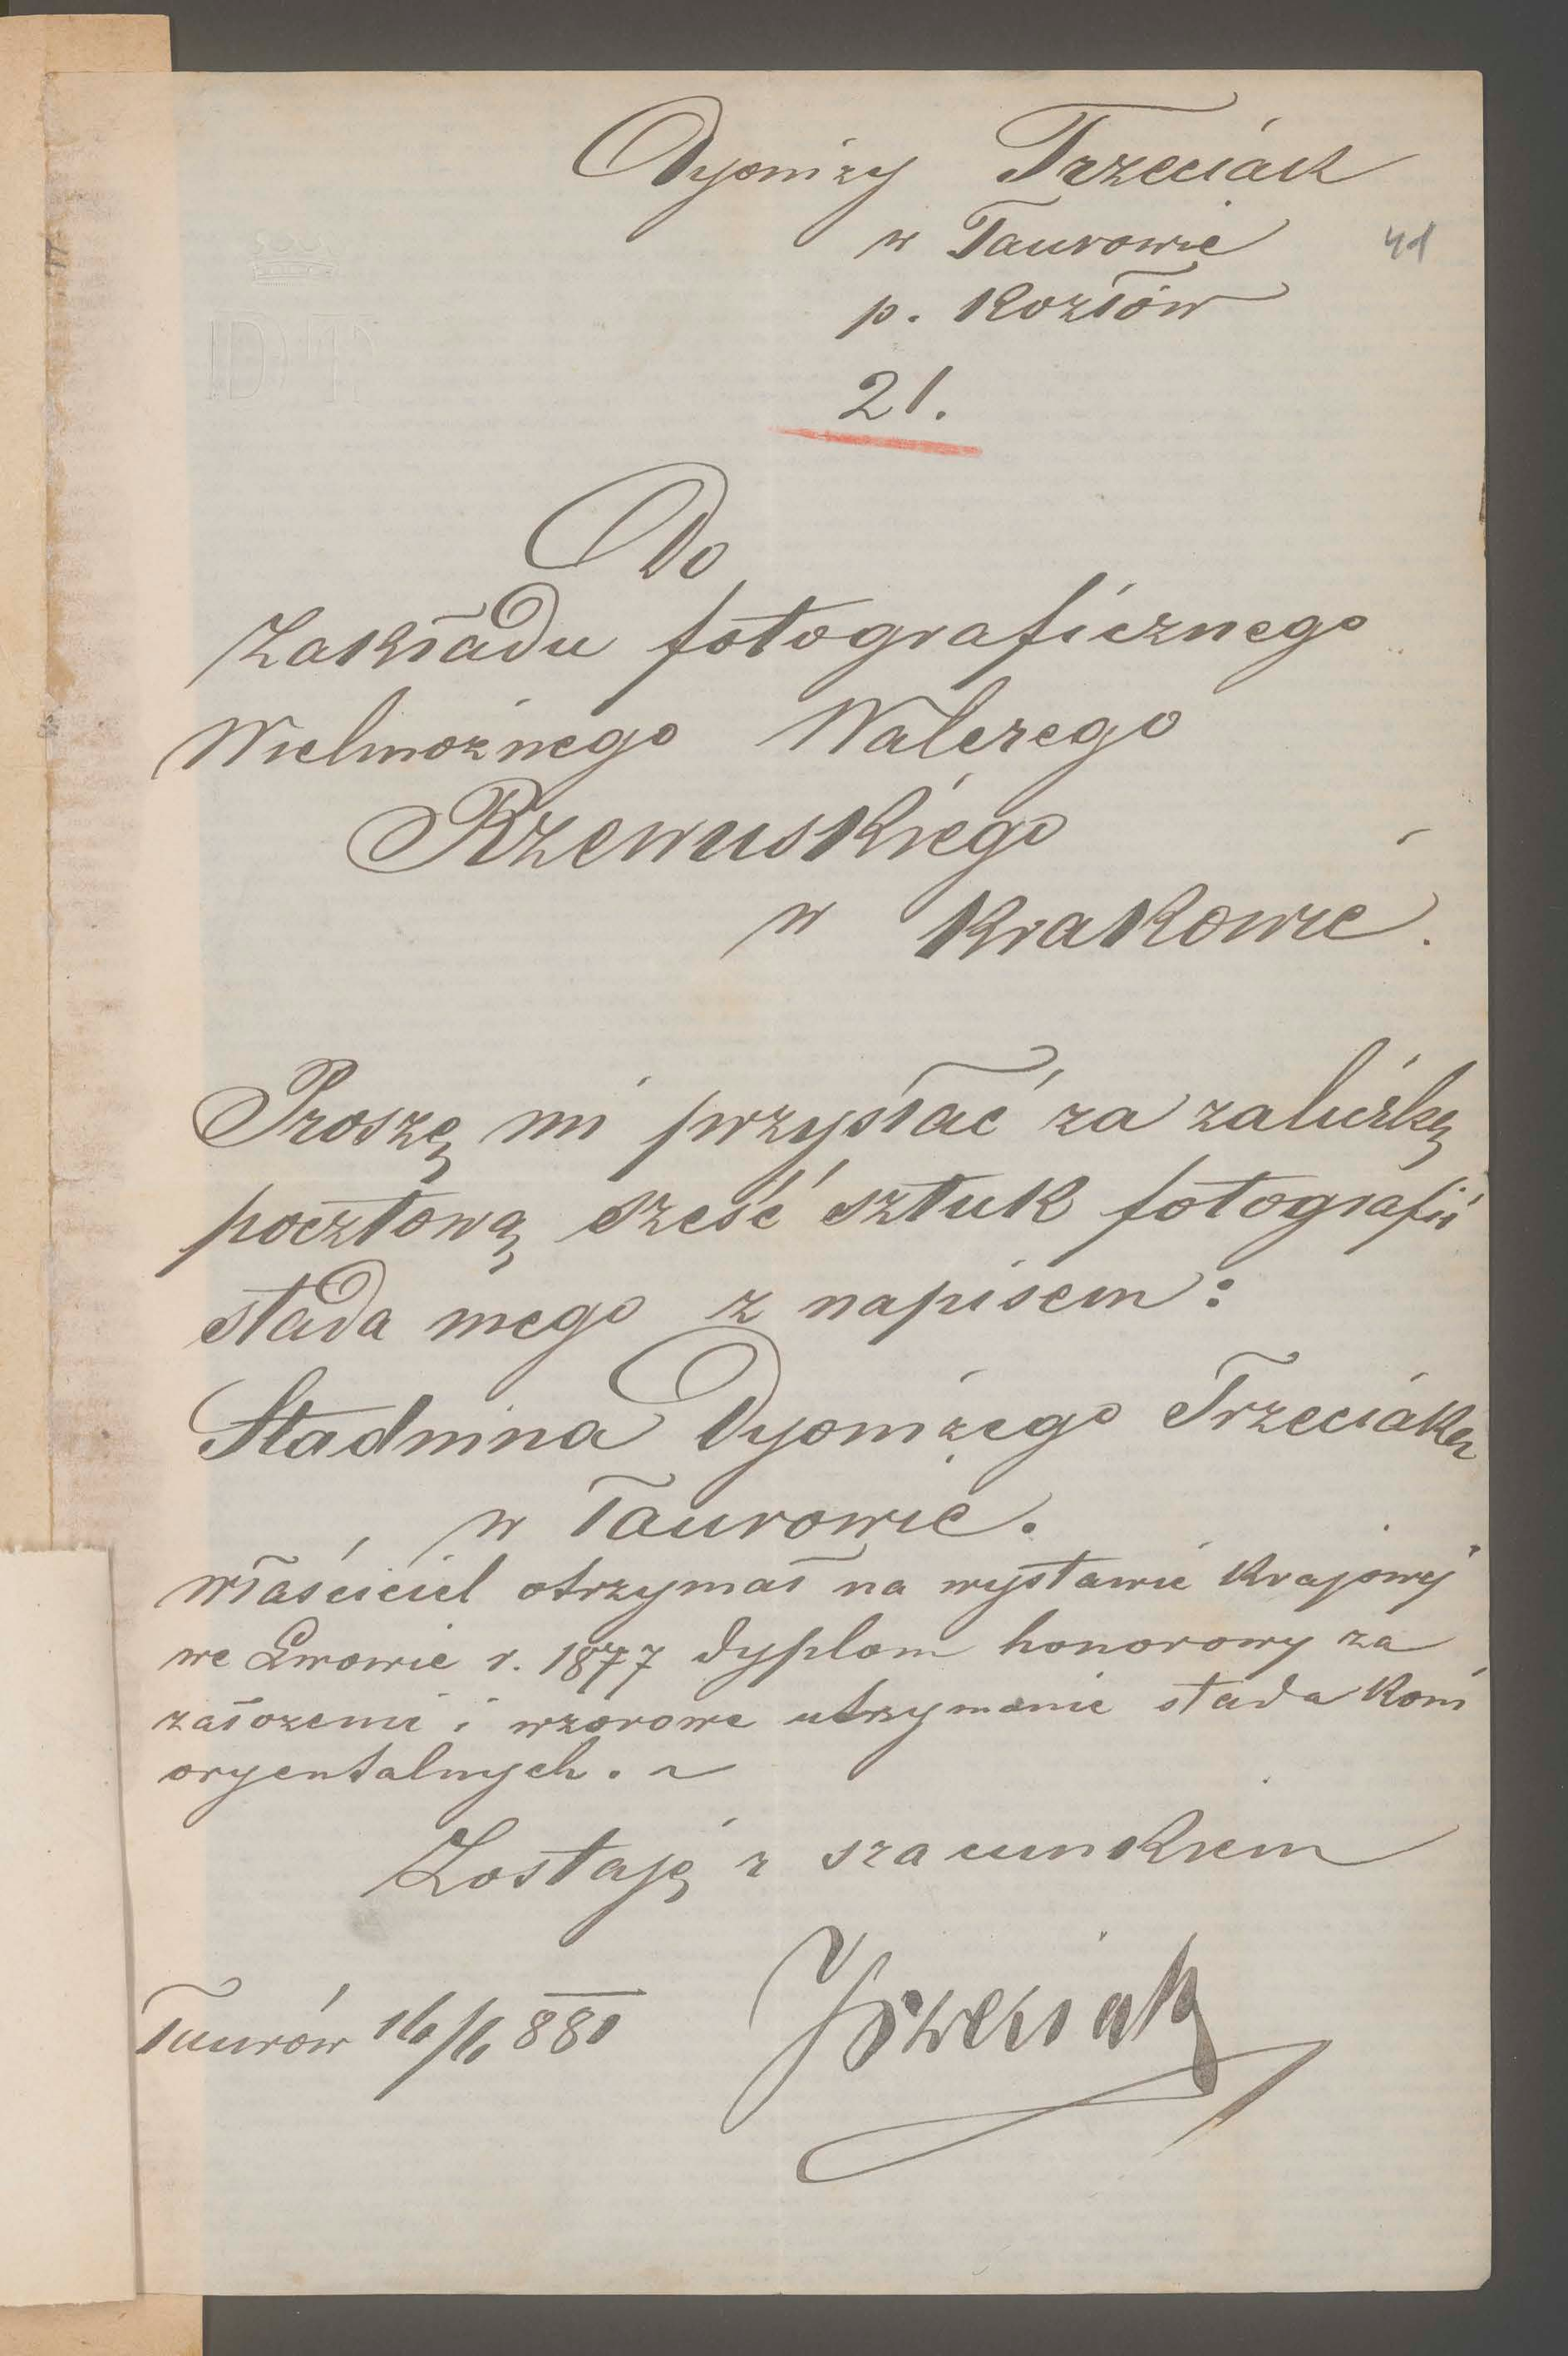 Dyonizy Trzeciak
w Taurowie
41
p. Kozłów
21.
DT
Do
Zakładu fotograficznego
Wielmożnego Walerego
Rzewuskiego
w Krakowie.
Proszę mi przysłać za zaliczką
pocztową sześć sztuk fotografii
stada mego z napisem:
Stadnina Dyonizego Trzeciaka
w Taurowie.
właściciel otrzymał na wystawie Krajowej
we Lwowie r. 1877 dyplom honorowy za
założenie i wzorowe utrzymanie stada koni
oryentalnych.
Zostaję z szacunkiem
Taurów 16/6 880
Trzeciak